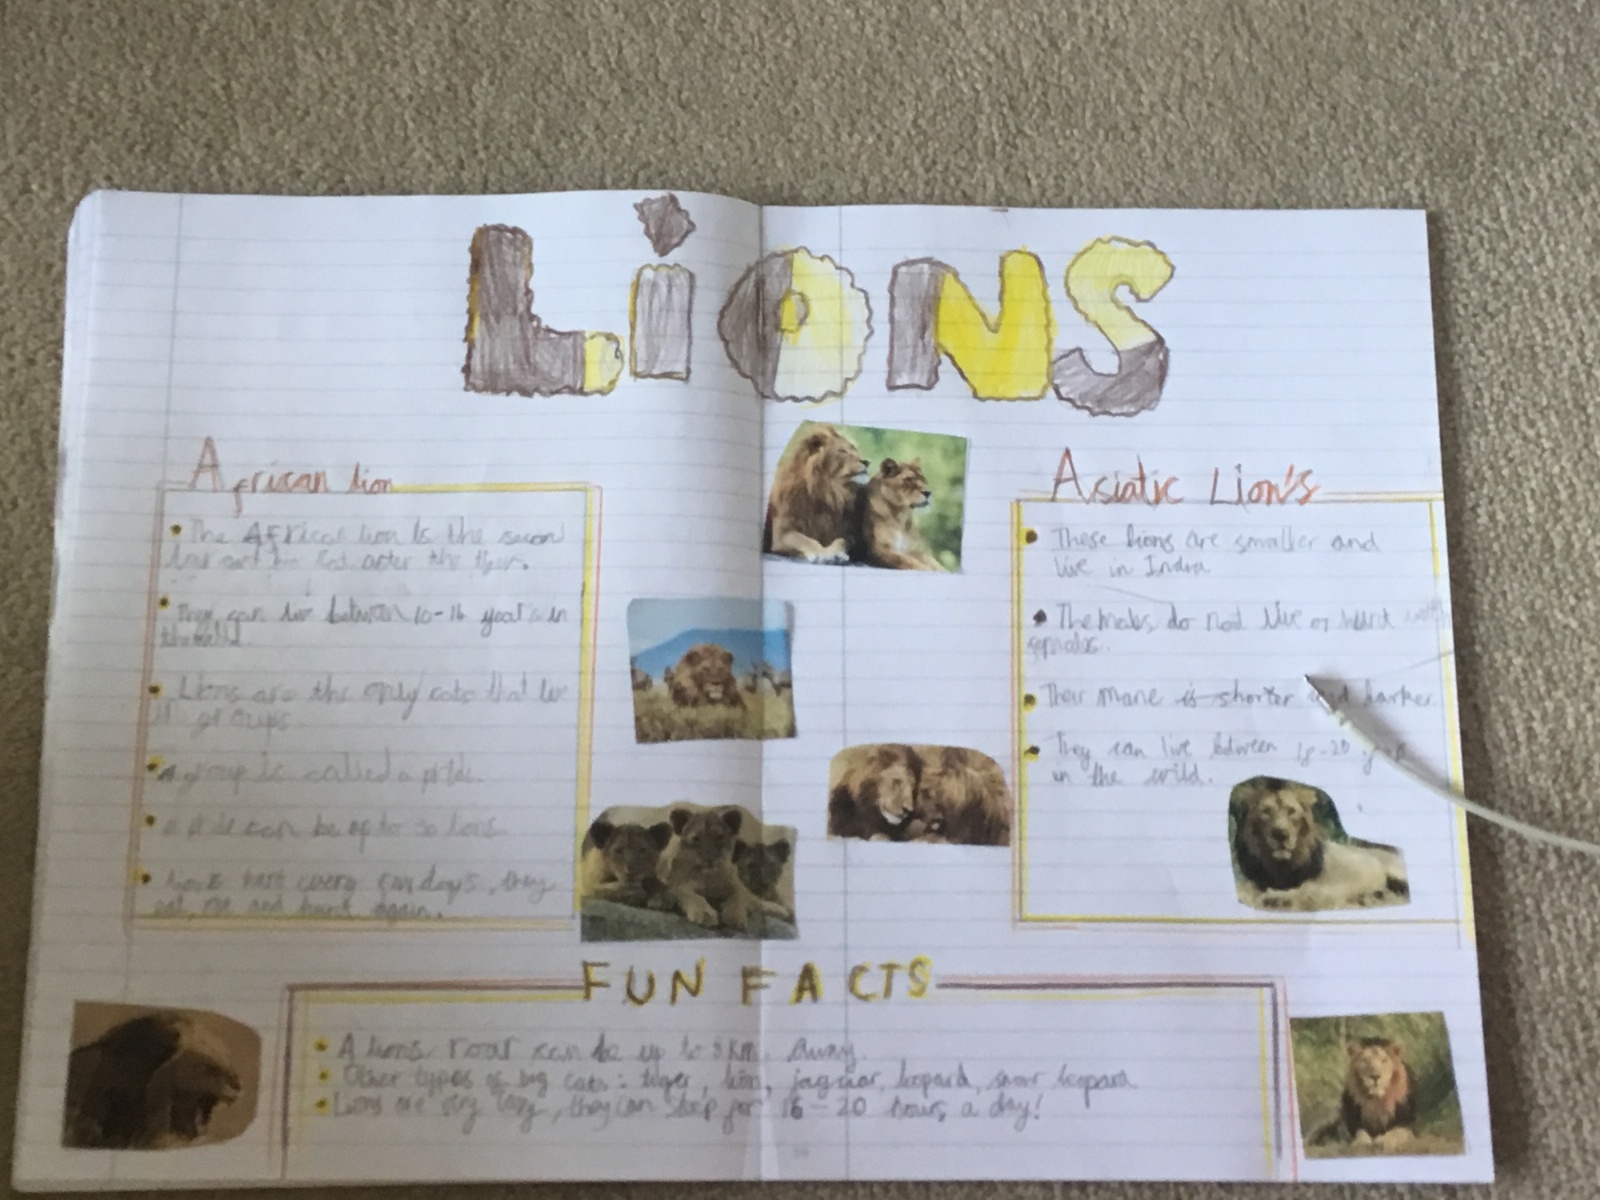 Lions
African lion
• The African lion is the second
after the tiger.
• They can live between 10-14 year's in
the wild.
• Lions are the only cats that live
in groups.
• A group is called a pride.
• A pride can be up to 30 lions.
• days, they
eat, and hunt again.
Asiatic Lion's
• These lions are smaller and
live in India
• The males do not live or hunt with
females.
• Their mane is shorter and darker.
• They can live between 18-20
in the wild.
FUN FACTS
• A lions roar can be up to 8km. away.
• Other types of big cats: tiger, lion, jaguar, leopard, snow leopard
• Lions are very lazy, they can sleep for 16-20 hours a day!